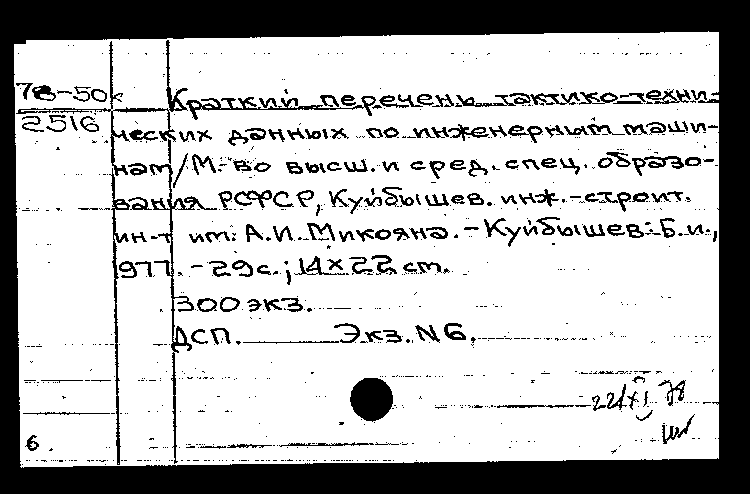 78-50к
2516
Краткий перечень тактико-техни-
ческих данных по инженерным маши-
нам/М-во высш. и сред. спец. образо-
вания РСФСР, Куйбышев. инж.-строит.
ин-т им. А.И. Микояна. - Куйбышев: Б.и.,
977. - 29 с.; 14×22 см.
300 экз.
ДСП. Экз. N 6.
22/XI 78
6.